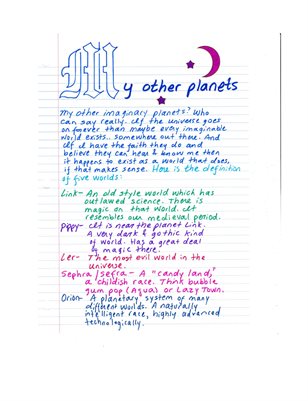 My other planets
My other imaginary planets? Who
can say really. If the universe goes
on forever than maybe evry imaginable
world exists.. somewhere out there. And
if I have the faith they do and
believe they can hear & know me then
it happens to exist as a world that does,
if that makes sense. Here is the definition
of five worlds:
Link- An old style world which has
outlawed science. There is
magic on that world. It
resembles our medieval period.
Pippy- It is near the planet Link.
A very dark & gothic kind
of world. Has a great deal
of magic there.
Ler- The most evil world in the
universe.
Sephra/Sefra - A "candy land,"
a childish race. Think bubble
gum pop (Aqua) or Lazy Town.
Orion- A planetary system of many
different worlds. A naturally
intelligent race, highly advanced
technologically.